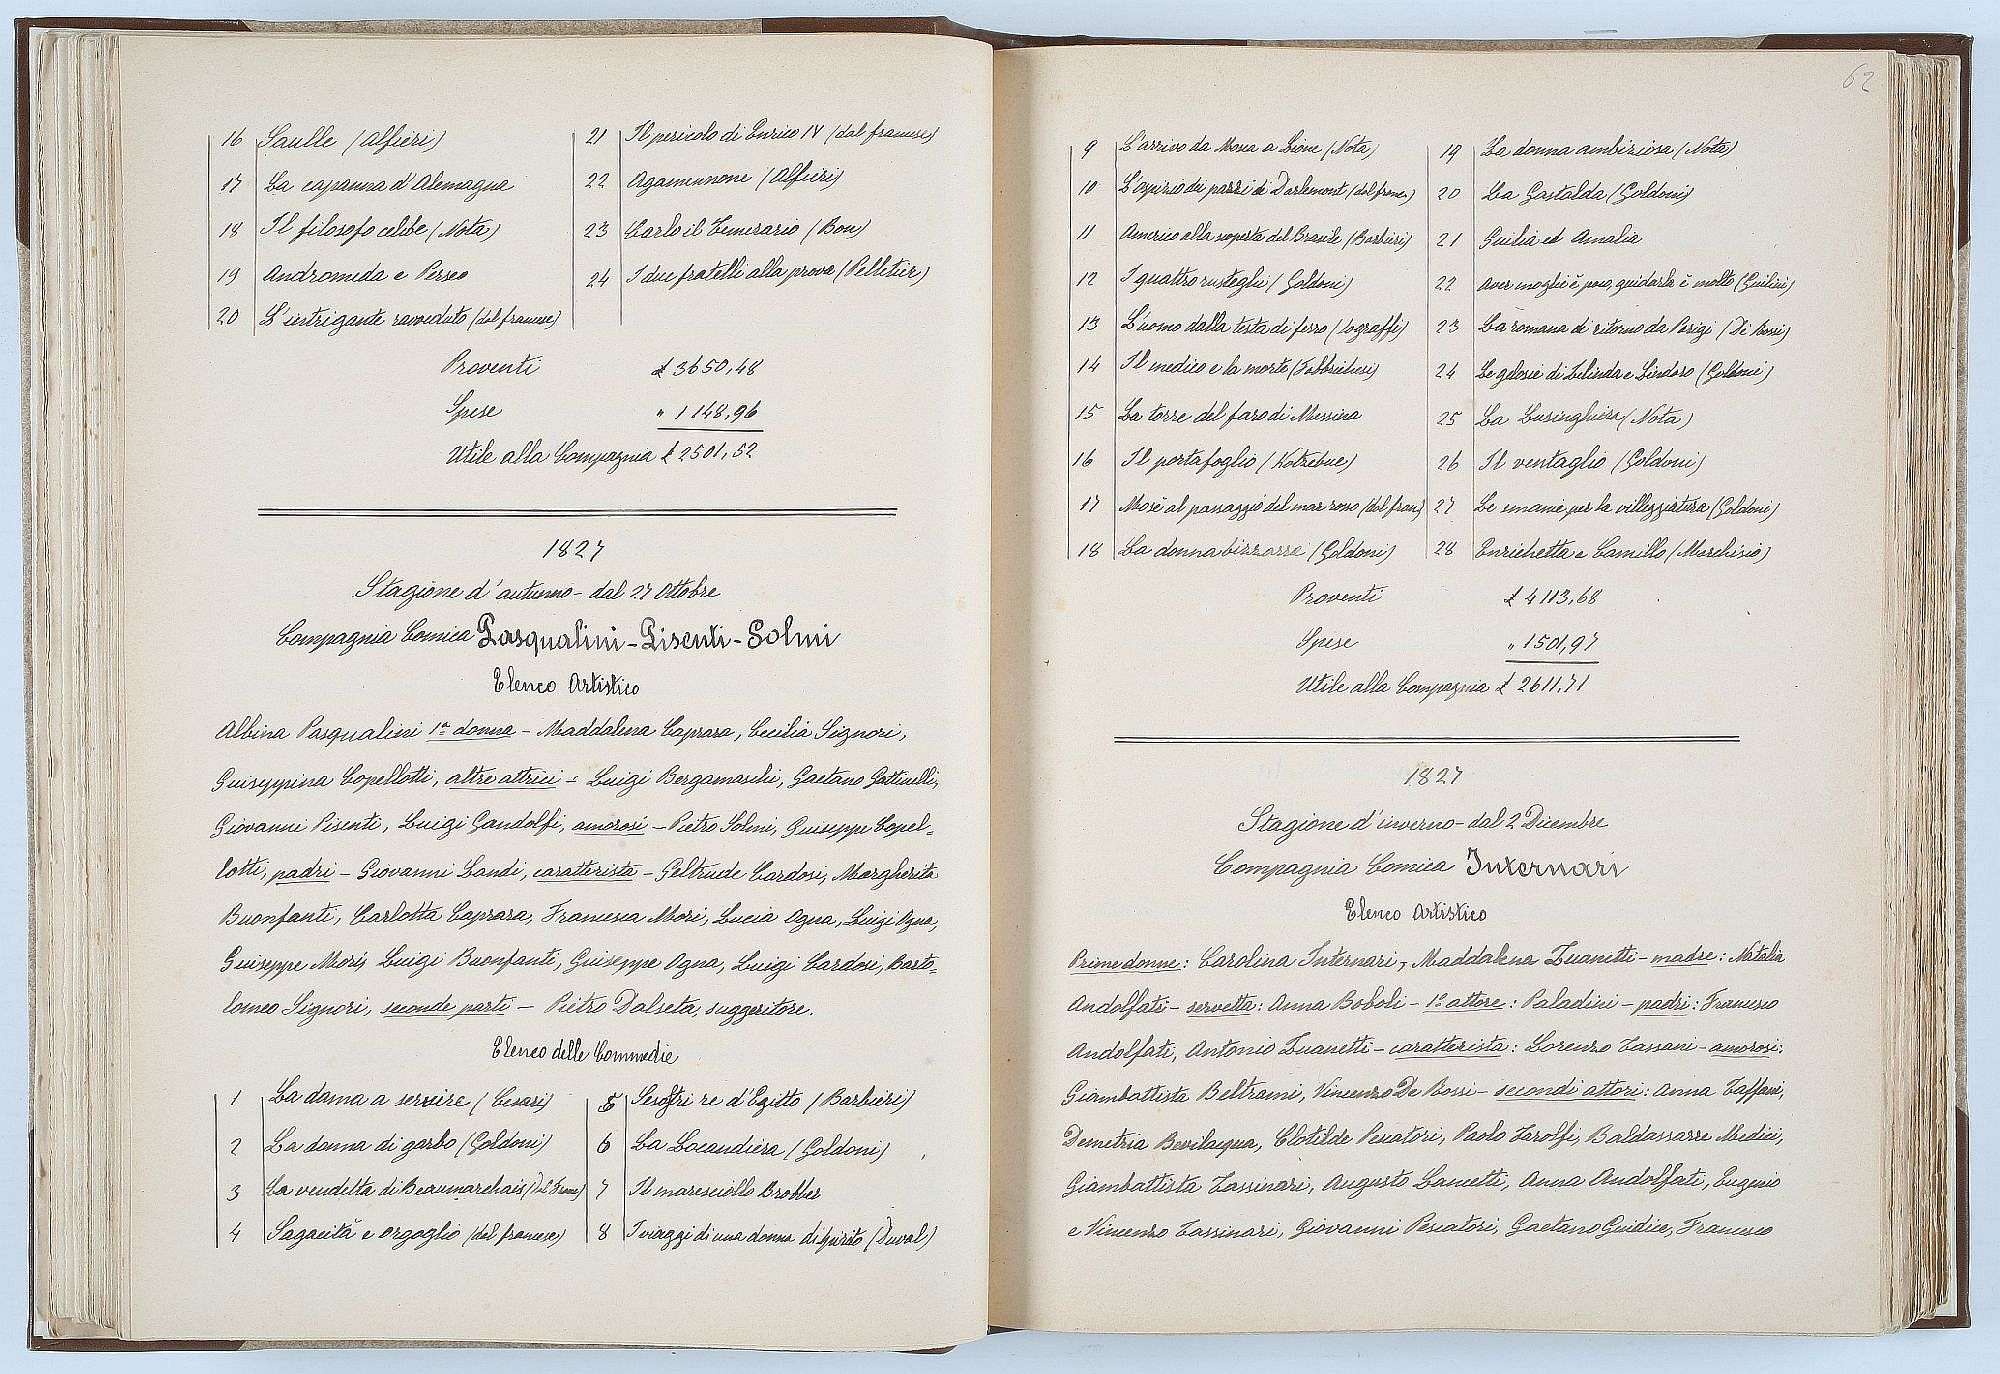 16 Saulle (Alfieri)
17 La capanna d'Alemagna
18 Il filosofo celibe (Nota)
19 Andromeda e Perseo
20 L'intrigante ravveduto (dal francese)
21 Il pericolo di Enrico IV (dal francese)
22 Agamennone (Alfieri)
23 Carlo il Temerario (Bon)
24 I due fratelli alla prova (Pelletier)
Proventi £ 3650,48
Spese " 1148,96
Utile alla Compagnia £ 2501,52
1827
Stagione d'autunno - dal 27 Ottobre
Compagnia Comica Pasqualini - Pisenti - Solmi
Elenco Artistico
Albina Pasqualini 1ª donna - Maddalena Caprara, Cecilia Signori,
Guiseppina Copellotti, altre attrici - Luigi Bergamaschi, Gaetano Gattinelli,
Giovanni Pisenti, Luigi Gandolfi, amorosi - Pietro Solmi, Guiseppe Copel-
lotti, padri - Giovanni Landi, caratterista - Geltrude Cardosi, Margherita
Buonfanti, Carlotta Caprara, Francesca Mori, Lucia Ogna, Luigi Ogna,
Guiseppe Mori, Luigi Buonfanti, Guiseppe Ogna, Luigi Cardosi, Barto-
lomeo Signori, seconde parti - Pietro Dalseta, suggeritore.
Elenco delle Commedie
1 La dama a servire (Cesari)
2 La donna di garbo (Goldoni)
3 La vendetta di Beaumarchais (Dal Franc)
4 Sagacità e orgoglio (dal francese)
5 Sesostri re d'Egitto (Barbieri)
6 La Locandiera (Goldoni)
7 Il maresciallo Brobber
8 I viaggi di una donna di spirito (Duval)
62
9 L'arrivo da Mosca a Lione (Nota)
10 L'opizio di pazzi di Darlemont (dal franc.)
11 Americo alla scoperta del Brasile (Barbieri)
12 I quattro rusteghi (Goldoni)
13 L'uomo dalla testa di ferro (Sograffi)
14 Il medico e la morte (Fabbrichesi)
15 La torre del faro di Messina
16 Il portafoglio (Kotzebue)
17 Mosè al passaggio del mar rosso (dal fran)
18 La donna bizzarre (Goldoni)
19 La donna ambiziosa (Nota)
20 La Gastalda (Goldoni)
21 Guilia ed Amalia
22 Aver moglie è poco, guidarla è molto (Guilini)
23 La romana di ritorno da Parigi (De Rossi)
24 Le gelosie di Zelinda e Lindoro (Goldoni)
25 La Lusinghiera (Nota)
26 Il ventaglio (Goldoni)
27 Le smanie per la villeggiatura (Goldoni)
28 Enrichetta e Camillo (Marchisio)
Proventi £ 4113,68
Spese " 1501,97
Utile alla Compagnia £ 2611,71
1827
Stagione d'inverno - dal 2 Dicembre
Compagnia Comica Internari
Elenco Artistico
Prime donne: Carolina Internari, Maddalena Zuanetti - madre: Natalia
Andolfati - servetta: Anna Boboli - 1º attore: Paladini - padri: Francesco
Andolfati, Antonio Zuanetti - caratterista: Lorenzo Tassani - amorosi:
Giambattista Beltrami, Vincenzo De Rossi - secondi attori: Anna Taffani,
Demetria Bevilacqua, Clotilde Pescatori, Paolo Farolfi, Baldassarre Medici,
Giambattista Tassinari, Augusto Lancetti, Anna Andolfati, Eugenio
e Vincenzo Tassinari, Giovanni Pescatori, Gaetano Guidice, Francesco